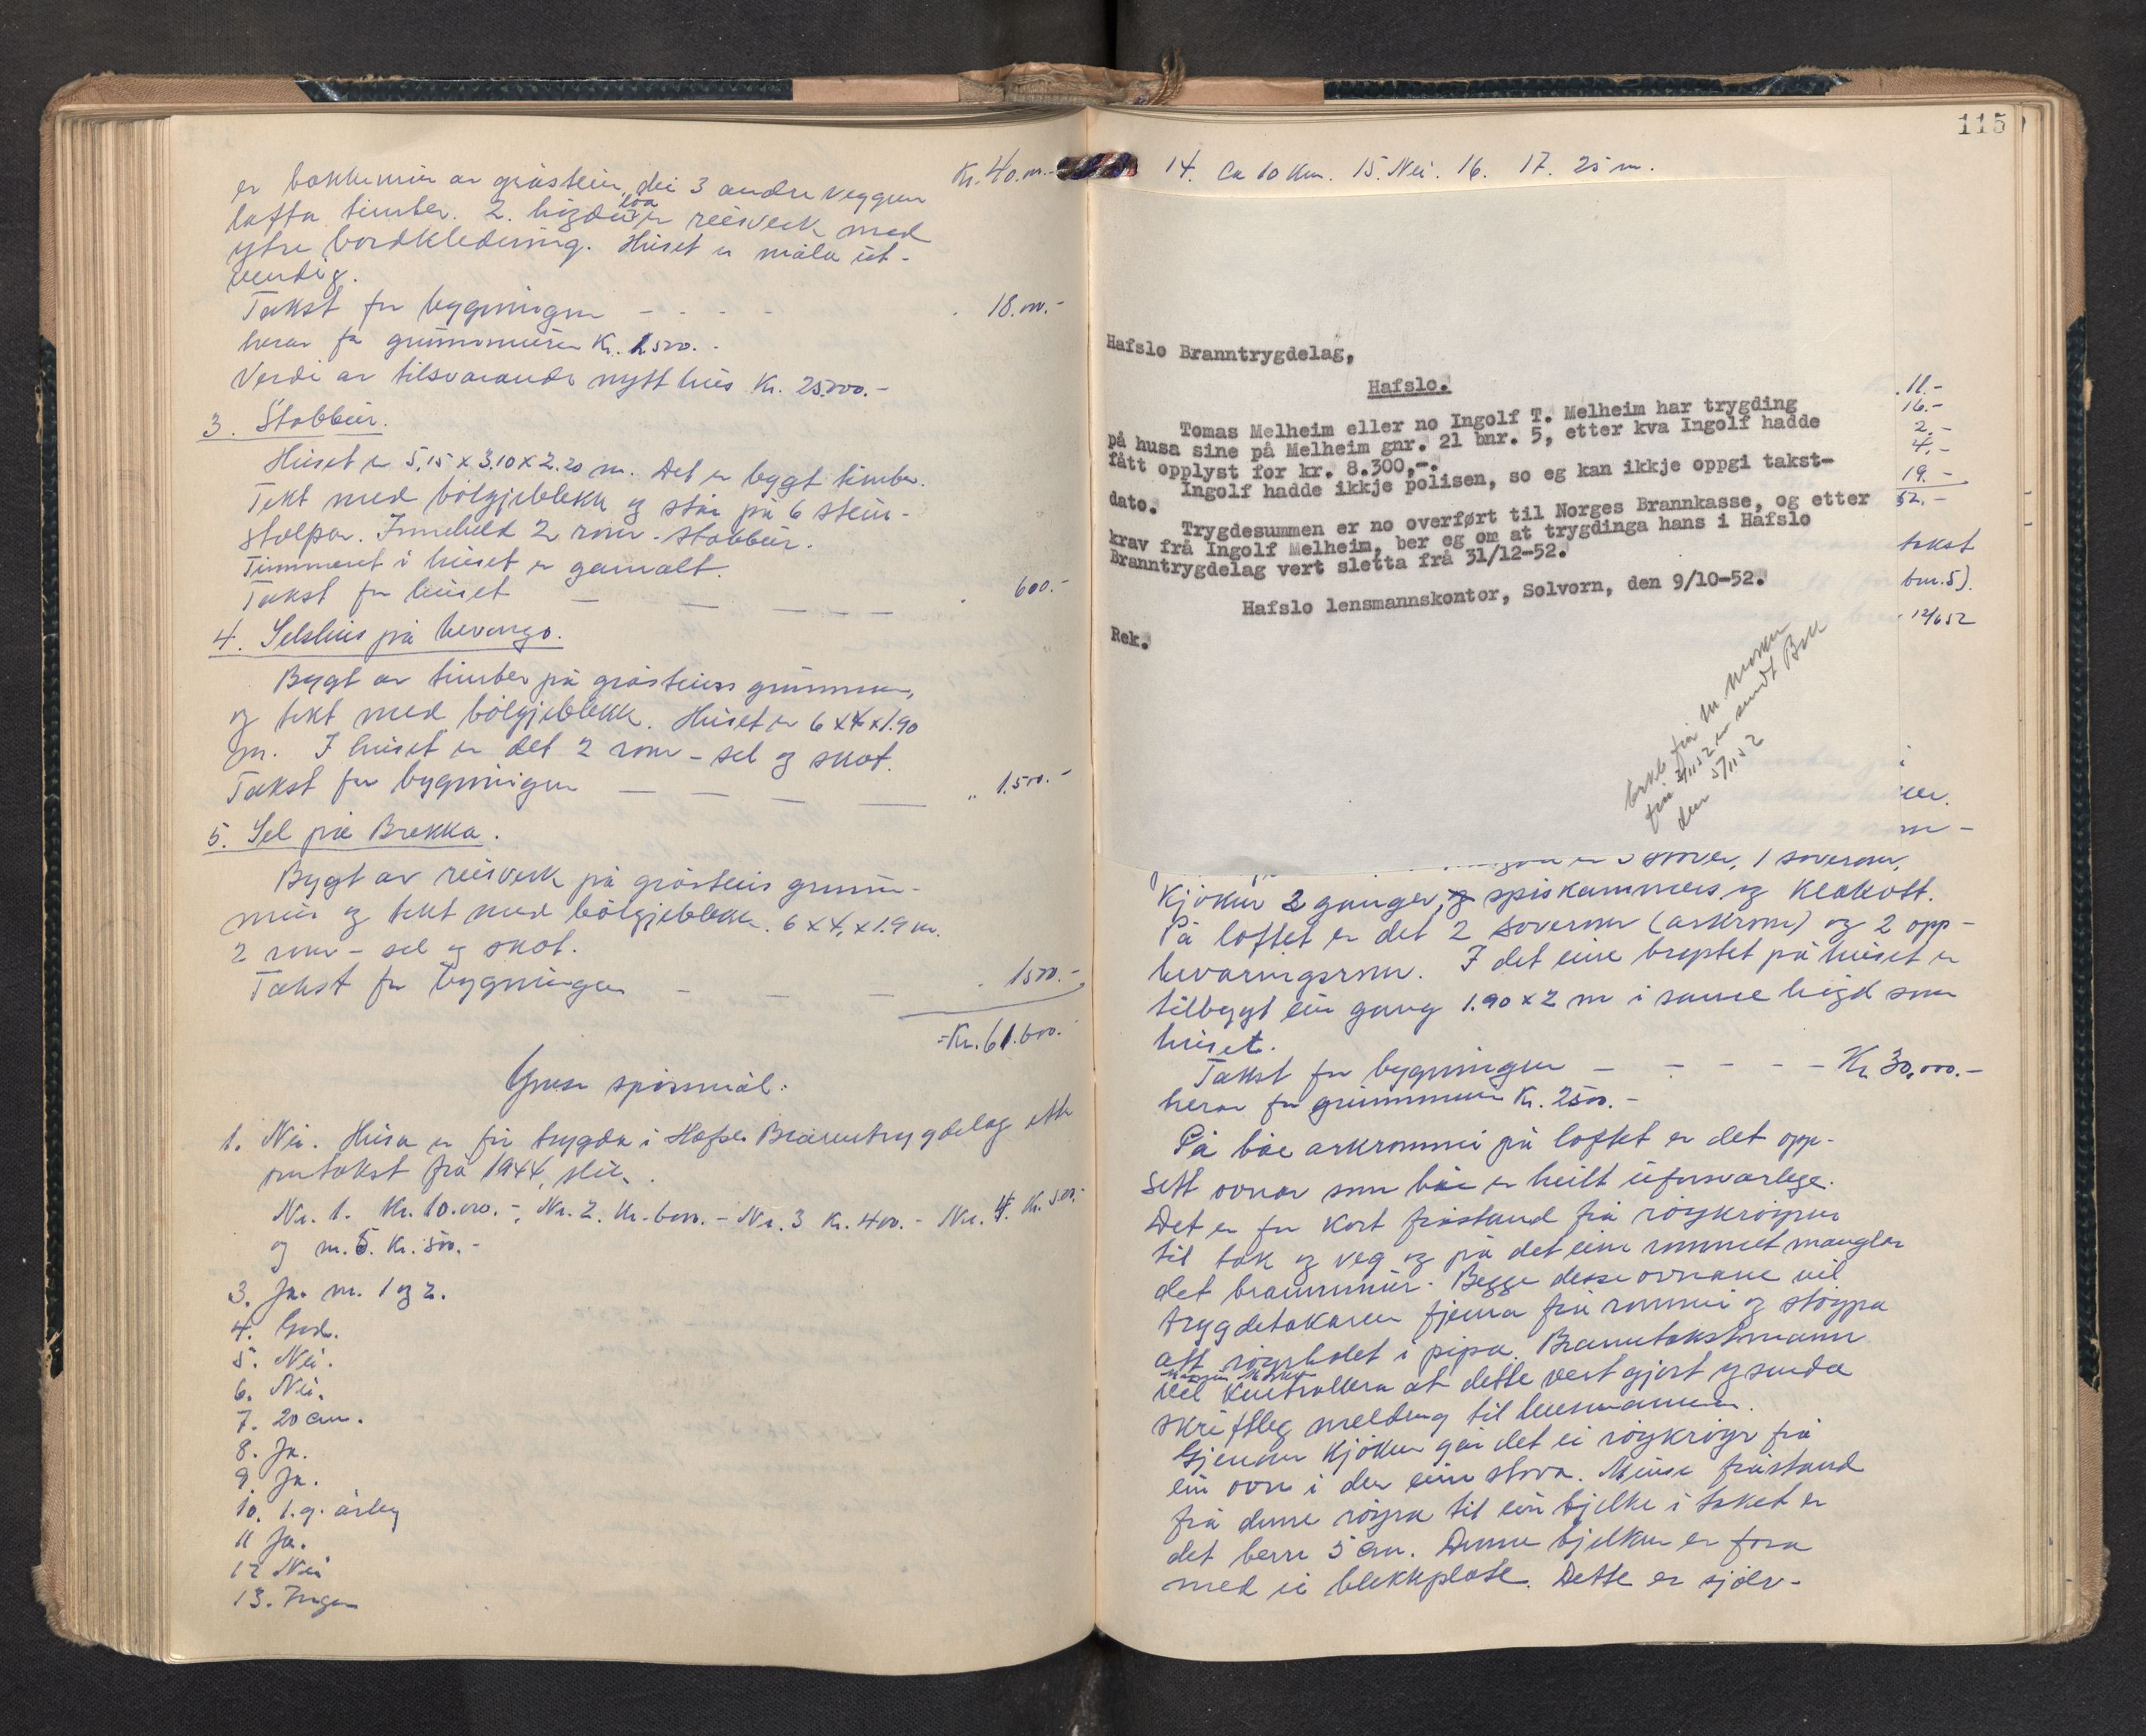 Kr. 40.000.-
er bakkemur av gråstein, dei 3 andre veggen
lafta timber. 2. högda loa er reisverk med
ytre bordkledning. Huset er måla ut-
vendig.
Takst for bygningen - - - - 18.000.-
herav for grunnmuren Kr. 1500.-
Verdi av tilsvarande nytt hus Kr. 25.000.-
3. Stabbur.
Huset er 5,15 x 3,10 x 2.20 m. Det er bygt timber.
Tekt med bölgjeblekk og står på 6 stein-
stolpar. Inneheld 2 rom - stabbur.
Timmeret i huset er gamalt.
Takst for huset — — — — 600.-
4. Selshus på
Bygt av timber på gråsteins grunnmur,
og tekt med bölgjeblekk. Huset er 6 x 4 x 1.90
m. I huset er det 2 rom - sel og skot.
Takst for bygningen — — — — " 1.500.-
5. Sel på Brekka.
Bygt av reisverk på gråsteins grunn-
mur og tekt med bölgjeblekk. 6 x 4 x 1.9 m.
2 rom - sel og skot.
Takst for bygningen - — — 1500.-
= Kr. 61.600.-
Ymse spörsmål:
1. Nei. Husa er för trygda i Hafslo Branntrygdelag etter
omtakst frå 1944, slik.
Nr. 1. Kr. 10.000.-, Nr. 2. Kr. 6000.- Nr. 3 Kr. 400.- Nr. 4. Kr. 500.-
og nr. 5. Kr. 500.-
3. Ja. nr. 1 og 2.
4. God.
5. Nei.
6. Nei.
7. 20 cm.
8. Ja.
9. Ja.
10. 1. g. årleg
11 Ja.
12 Nei
13. Ingen
115
14. Ca 10 km. 15. Nei. 16. 17. 25 m.
Hafslo Branntrygdelag,
Hafslo.
Tomas Melheim eller no Ingolf T. Melheim har trygding
på husa sine på Melheim gnr. 21 bnr. 5, etter kva Ingolf hadde
fått opplyst for kr. 8.300,-.
Ingolf hadde ikkje polisen, so eg kan ikkje oppgi takst-
dato.
Trygdesummen er no overført til Norges Brannkasse, og etter
krav frå Ingolf Melheim, ber eg om at trygdinga hans i Hafslo
Branntrygdelag vert sletta frå 31/12-52.
Hafslo lensmannskontor, Solvorn, den 9/10-52.
Rek.
frå
den 5/11 52
11.-
16.-
2.-
4.-
19.-
52.-
takst
bnr. 5).
12/6 52
m -
1 soverom,
Kjöken 2 ganger, spiskammers og Klokott.
På loftet er det 2 soverom (arkrom) og 2 opp-
bevaringsrom. I det eine brystet på huset er
tilbygt ein gang 1.90 x 2 m i same högd som
huset.
Takst for bygningen - - - - - Kr 30.000.-
herav for grunnmuren Kr. 2500.-
På båe arkrommi på loftet er det opp-
sett ovnar som båe er heilt uforsvarlege.
Det er for kort fråstand frå röykröyret
til tak og veg og på det eine rommet manglar
det brannmur. Begge desse ovnane vil
trygdetakaren fjerna frå rommi og stöypa
att röyrholet i pipa. Branntakstmann
vil kontrollera at dette vert gjort og senda
skriftleg melding til lensmannen.
Gjenom Kjöken går det ei röykröyr frå
ein ovn i den eine stova. Minse fråstand
frå denne röyra til ein bjelke i taket er
det berre 5 cm. Denne bjelken er fora
med ei blekkplate. Dette er sjölv-